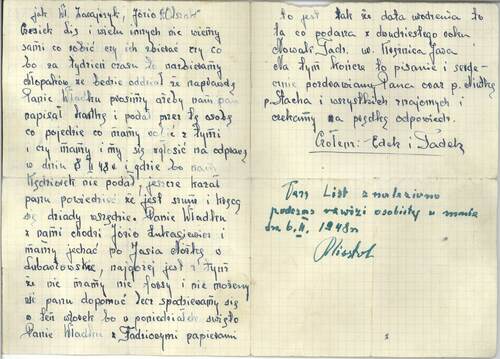 jak Wł. Zarajczyk, Józio
Czesiek Lis i wielu innych nie wiemy
sami co robić czy ich zbierać czy co
bo za tydzień czasu to nazbieramy
chłopaków że będzie oddział że naprawdę
Panie Władku prosimy ażeby nam pan
napisał kartkę i podał przez tą osobę
co pojedzie co mamy robić z tymi
i czy mamy i my się zgłosić na odprawę
w dniu 8 II 48 r i gdzie bo nam
nie podał, jeszcze kazał
panu powiedzieć że jest smutno i kręcą
się dziady wszędzie. Panie Władku
z nami chodzi Józio Łukasiewicz i
mamy jechać po Jasia
Lubartowskie, najgorzej jest z tym
że nie mamy nic forsy i nie możemy
nic panu dopomóc lecz spodziewamy się
w ten wtorek bo w poniedziałek święto
Panie Władku z Tadziowymi papierami
to jest tak że data urodzenia to
ta co podana z dwudziestego roku
Nowak Tad. w. Kośmica Jara
Na tym kończę to pisanie i serde-
cznie pozdrawiamy Pana oraz p.
p. Stacha i wszystkich znajomych i
czekamy na prędką odpowiedź.
Czołem: Edek i Tadek
Ten List znaleziono
podczas rewizji osobistej u
dn 6. II. 1948 r.